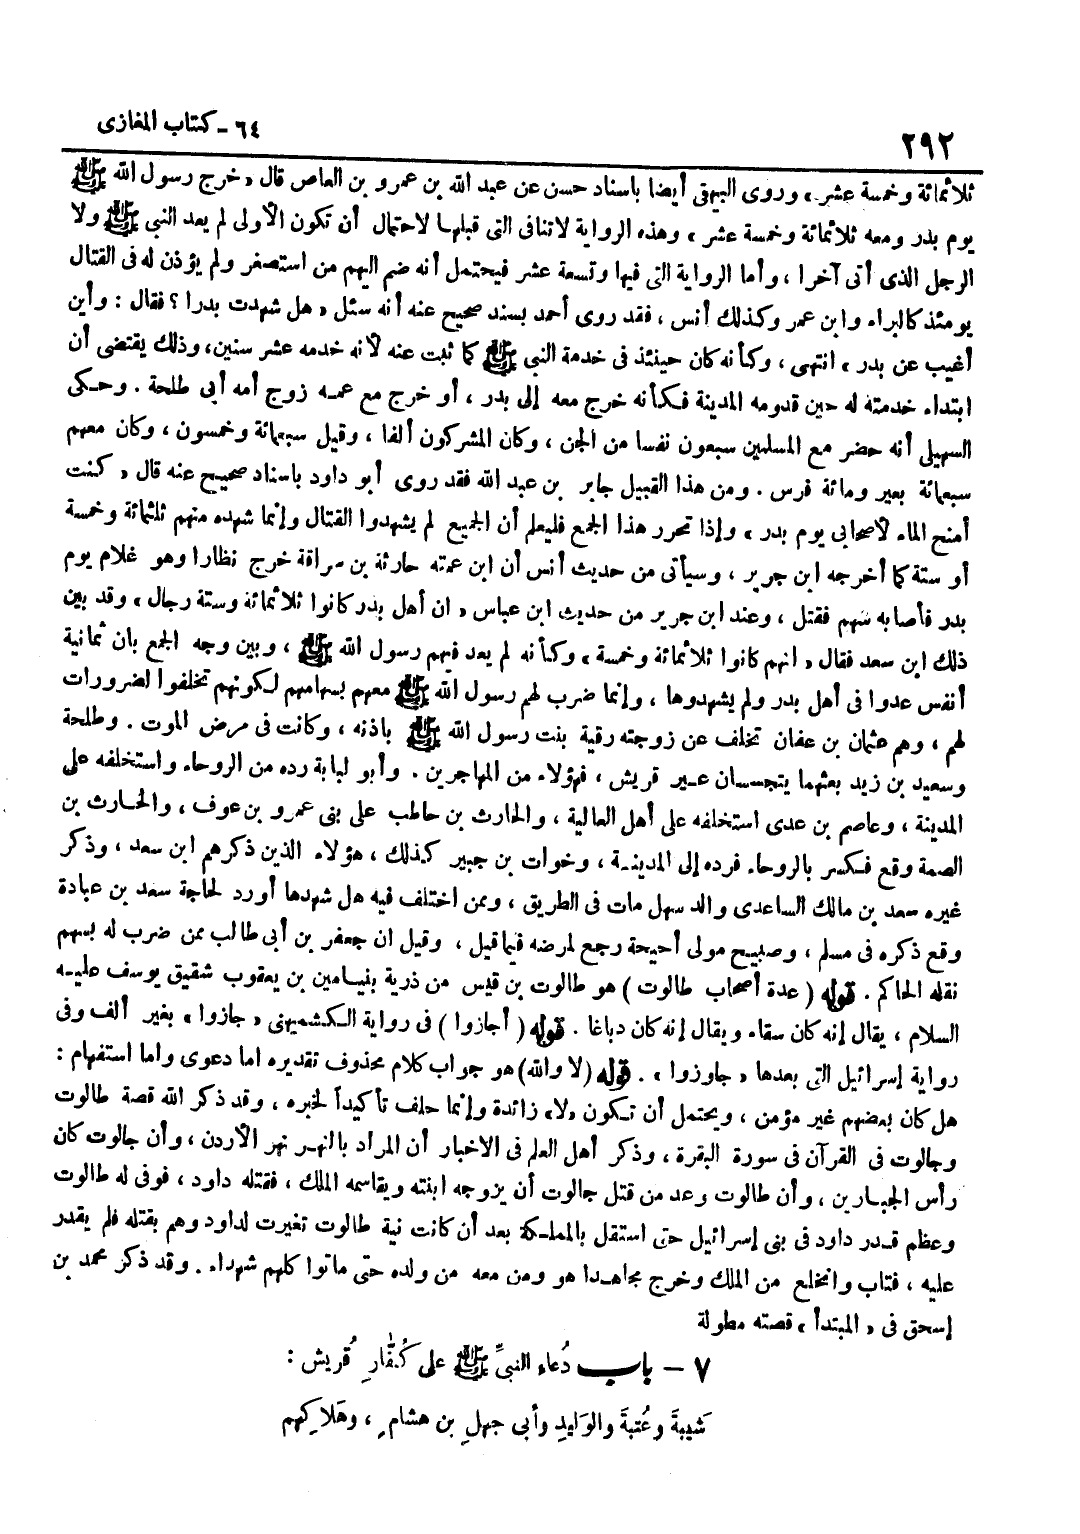 ٦٤ - كتاب المغازى
٢٩٢
ثلاثمائة وخمسة عشر ، وروى البيهقى أيضا باسناد حسن عن عبد الله بن عمرو بن العاص قال « خرج رسول الله ﷺ
يوم بدر ومعه ثلاثمائة وخمسة عشر ، وهذه الرواية لاتنافى التى قبلها لاحتمال أن تكون الأولى لم يعد النبى ﷺ ولا
الرجل الذى أتى آخرا ، وأما الرواية التى فيها وتسعة عشر فيحتمل أنه ضم اليهم من استصغر ولم يؤذن له فى القتال
يومئذ كالبراء وابن عمر وكذلك أنس ، فقد روى أحمد بسند صحيح عنه أنه سئل « هل شهدت بدرا ؟ فقال : وأين
أغيب عن بدر ، انتهى ، وكأنه كان حينئذ فى خدمة النبى ﷺ كما ثبت عنه لانه خدمه عشر سنين، وذلك يقتضى أن
ابتداء خدمته له حين قدومه المدينة فكأنه خرج معه إلى بدر ، أو خرج مع عمه زوج أمه أبى طلحة . وحكى
السهيلى أنه حضر مع المسلمين سبعون نفسا من الجن ، وكان المشركون ألفا ، وقيل سبعمائة وخمسون ، وكان معهم
سبعمائة بعير ومائة فرس . ومن هذا القبيل جابر بن عبد الله فقد روى أبو داود باسناد صحيح عنه قال « كنت
أمنح الماء لأصحابى يوم بدر ، وإذا تحرر هذا الجمع فليعلم أن الجميع لم يشهدوا القتال وإنما شهده منهم ثلثمائة وخمسة
أو ستة كما أخرجه ابن جرير ، وسيأتى من حديث أنس أن ابن عمته حارثة بن سراقة خرج نظارا وهو غلام يوم
بدر فأصابه سهم فقتل ، وعند ابن جرير من حديث ابن عباس « ان أهل بدر كانوا ثلاثمائة وستة رجال » وقد بين
ذلك ابن سعد فقال « انهم كانوا ثلاثمائة وخمسة » وكأنه لم يعد فيهم رسول الله ﷺ ، وبين وجه الجمع بان ثمانية
أنفس عدوا فى أهل بدر ولم يشهدوها ، وإنما ضرب لهم رسول الله ﷺ معهم بسهامهم لكونهم تخلفوا لضرورات
لهم ، وهم عثمان بن عفان تخلف عن زوجته رقية بنت رسول الله ﷺ باذنه ، وكانت فى مرض الموت . وطلحة
وسعيد بن زيد بعثهما يتجسسان عير قريش ، فهؤلاء من المهاجرين . وأبو لبابة رده من الروحاء واستخلفه على
المدينة ، وعاصم بن عدى استخلفه على أهل العالية ، والحارث بن حاطب على بنى عمرو بن عوف ، والحارث بن
الصمة وقع فكسر بالروحاء فرده إلى المدينة ، وخوات بن جبير كذلك ، هؤلاء الذين ذكرهم ابن سعد ، وذكر
غيره سعد بن مالك الساعدى والد سهل مات فى الطريق ، وممن اختلف فيه هل شهدها أورد لحاجة سعد بن عبادة
وقع ذكره فى مسلم ، وصبيح مولى أحيحة رجع لمرضه فيما قيل ، وقيل ان جعفر بن أبى طالب ممن ضرب له بسهم
نقله الحاكم . قوله ( عدة أصحاب طالوت ) هو طالوت بن قيس من ذرية بنيامين بن يعقوب شقيق يوسف عليه
السلام ، يقال إنه كان سقاء ويقال إنه كان دباغا . قوله ( أجازوا ) فى رواية الكشميهنى « جازوا » بغير ألف وفى
رواية إسرائيل التى بعدها « جاوزوا » . قوله ( لا والله) هو جواب كلام محذوف تقديره اما دعوى واما استفهام :
هل كان بعضهم غير مؤمن ، ويحتمل أن تكون «لا» زائدة وإنما حلف تأكيداً لخبره ، وقد ذكر الله قصة طالوت
وجالوت فى القرآن فى سورة البقرة ، وذكر أهل العلم فى الاخبار أن المراد بالنهر نهر الأردن ، وأن جالوت كان
رأس الجبارين ، وأن طالوت وعد من قتل جالوت أن يزوجه ابنته ويقاسمه الملك ، فقتله داود ، فوفى له طالوت
وعظم قدر داود فى بنى إسرائيل حتى استقل بالمملكة بعد أن كانت نية طالوت تغيرت لداود وهم بقتله فلم يقدر
عليه ، فتاب وانخلع من الملك وخرج مجاهدا هو ومن معه من ولده حتى ماتوا كلهم شهداء . وقد ذكر محمد بن
إسحق فى « المبتدأ » قصته مطولة
٧ - باب دُعاء النبىِّ ﷺ على كُفّارِ قُريش :
شَيبةَ وعُتبةَ والوَليدِ وأبى جهلِ بن هشامٍ ، وهَلاكِهم